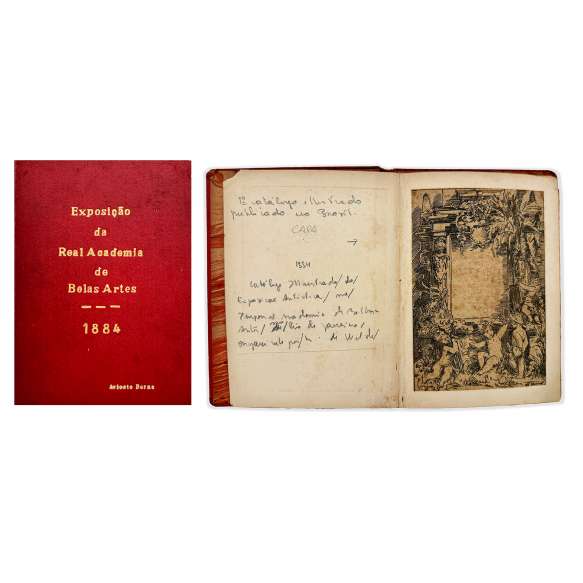 Exposição
da
Real Academia
de
Belas Artes
1884
1º catálogo illustrado
publicado no Brasil.
CAPA
1884
Catálogo Illustrado/da/
Exposição Artística/na/
Imperial Academia de Bellas
Artes/ do/Rio de Janeiro/
Organizado por/